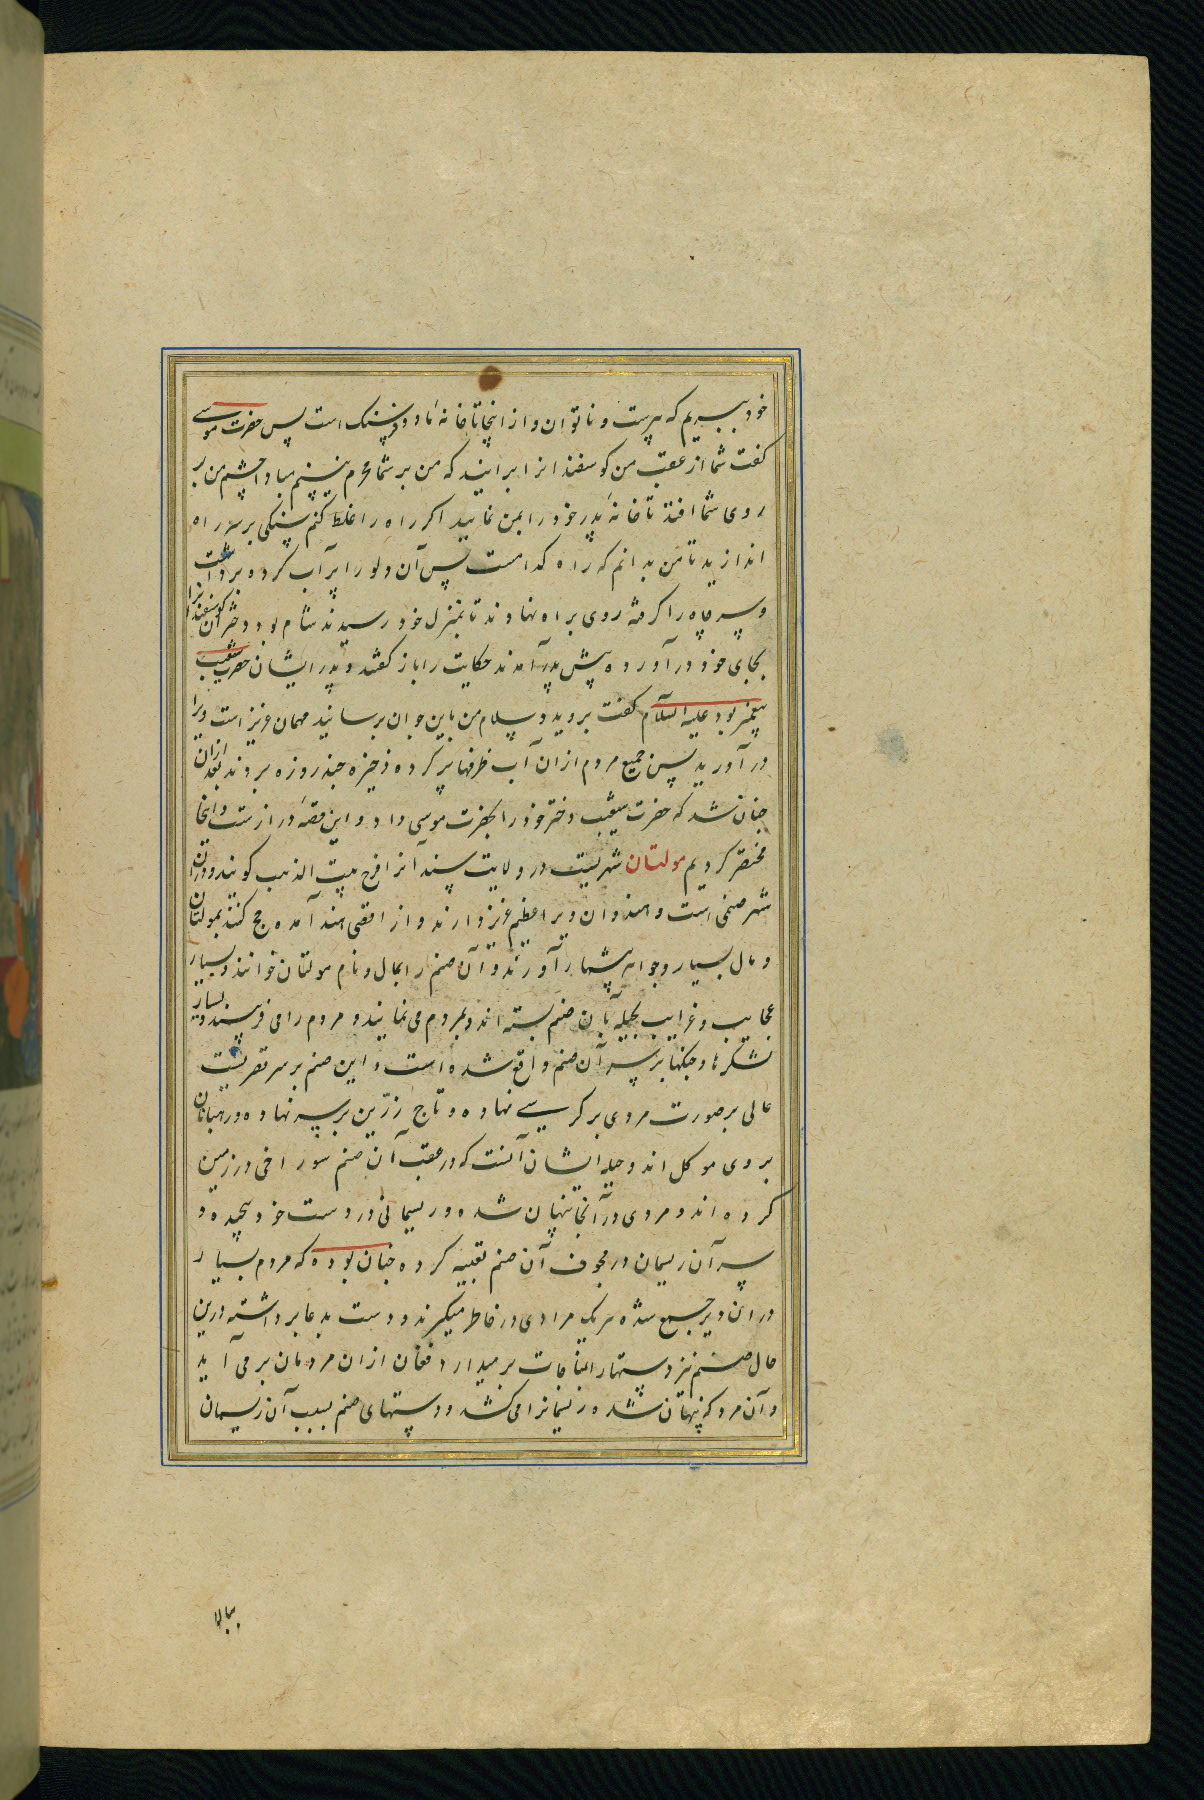 خود ببریم که پیرست و ناتوان و از اینجا تا خانهٔ ما دو فرسنک است پس حضرت موسی
کفت شما از عقب من کوسفندانرا برانید که من بر شما محرم نیستم مبادا چشم من بر
روی شما افتد تا خانهٔ پدر خود را بمن نمایید اکر راه را غلط کنم سنکی بر سر راه
اندازید تا من بدانم که راه کدامست پس آن دلو را پر آب کرده برداشت
و سر چاه را کرفته روی براه نهادند تا بمنزل خود رسیدند شام بود دختران کوسفندانرا
بجای خود درآورده پیش پدر آمدند حکایت را باز کفتند و پدر ایشان حضرت شعیب
پیغمبر بود علیه السلام کفت بروید و سلام من باین جوان برسانید مهمان عزیز است ویرا
درآورید پس جمیع مردم ازان آب ظرفها پر کرده ذخیره چند روزه بردند بعد ازان
چنان شد که حضرت شعیب دختر خود را بحضرت موسی داد و این قصه دراز ست و اینجا
مختصر کردیم مولتان شهریست در ولایت سند آنرا فرج بیت الذهب کویند و دران
شهر صنمی است و هندوان ویرا عظیم عزیز دارند و از اقصی هند آمده حج کنند بمولتان
و مال بسیار و جواهر بیشمار آورند و آن صنم را بمال و نام مولتان خوانند و بسیار
عجایب و غرایب بحیله بآن صنم بسته اند و بمردم می نمایند و مردم را می فریبند و بسیار
لشکرها و جنکها بر سر آن صنم واقع شده است و این صنم بر سر قصریست
عالی بر صورت مردی بر کرسی نهاده و تاج زرین بر سر نهاده و رهبانان
بروی موکل اند و حیله ایشان آنست که در عقب آن صنم سوراخی در زمین
کرده اند و مردی در آنجا پنهان شده و ریسمانی در دست خود پیچیده و
سر آن ریسمان در مجوف آن صنم تعبیه کرده چنان بوده که مردم بسیار
در ان دیر جمع شده هر یک مرادی در خاطر میکیرند و دست بدعا برداشته درین
حال صنم نیز دستهارا بمناجات برمیدارد فغان ازان مردمان برمی آید
و آن مرد که پنهان شده ریسمانرا می کشد و دستهای صنم بسبب آن ریسمان
ببالا